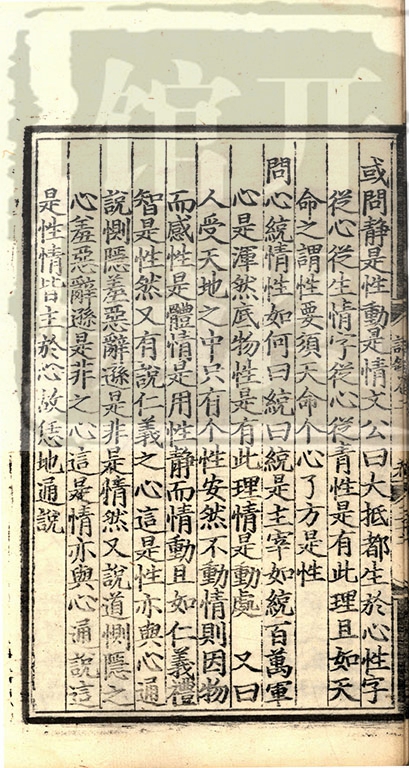 或問静是性動是情文公曰大抵都生於心性字
從心從生情字從心從青性是有此理且如天
命之謂性要須天命个心了方是性
問心統情性如何曰統是主宰如統百萬軍
心是渾然底物性是有此理情是動處 又曰
人受天地之中只有个性安然不動情則因物
而感性是體情是用性静而情動且如仁義禮
智是性然又有說仁義之心這是性亦與心通
說惻隱羞惡辭遜是非是情然又說道惻隱之
心羞惡辭遜是非之心這是情亦與心通說這
是性情皆主於心故恁地通說